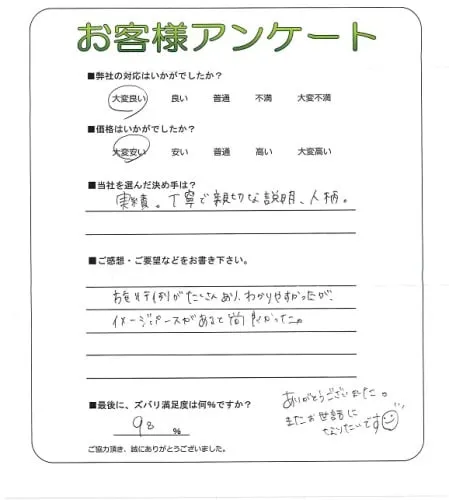 お客様アンケート
■弊社の対応はいかがでしたか？
大変良い 良い 普通 不満 大変不満
■価格はいかがでしたか？
大変安い 安い 普通 高い 大変高い
■当社を選んだ決め手は？
実績。丁寧で親切な説明、人柄。
■ご感想・ご要望などをお書き下さい。
お見り 例がたくさんあり、わかりやすかったが、
イメージパースがあると尚良かった。
■最後に、ズバリ満足度は何%ですか？
98 %
ありがとうございました。
またお世話に
なりたいです
ご協力頂き、誠にありがとうございました。